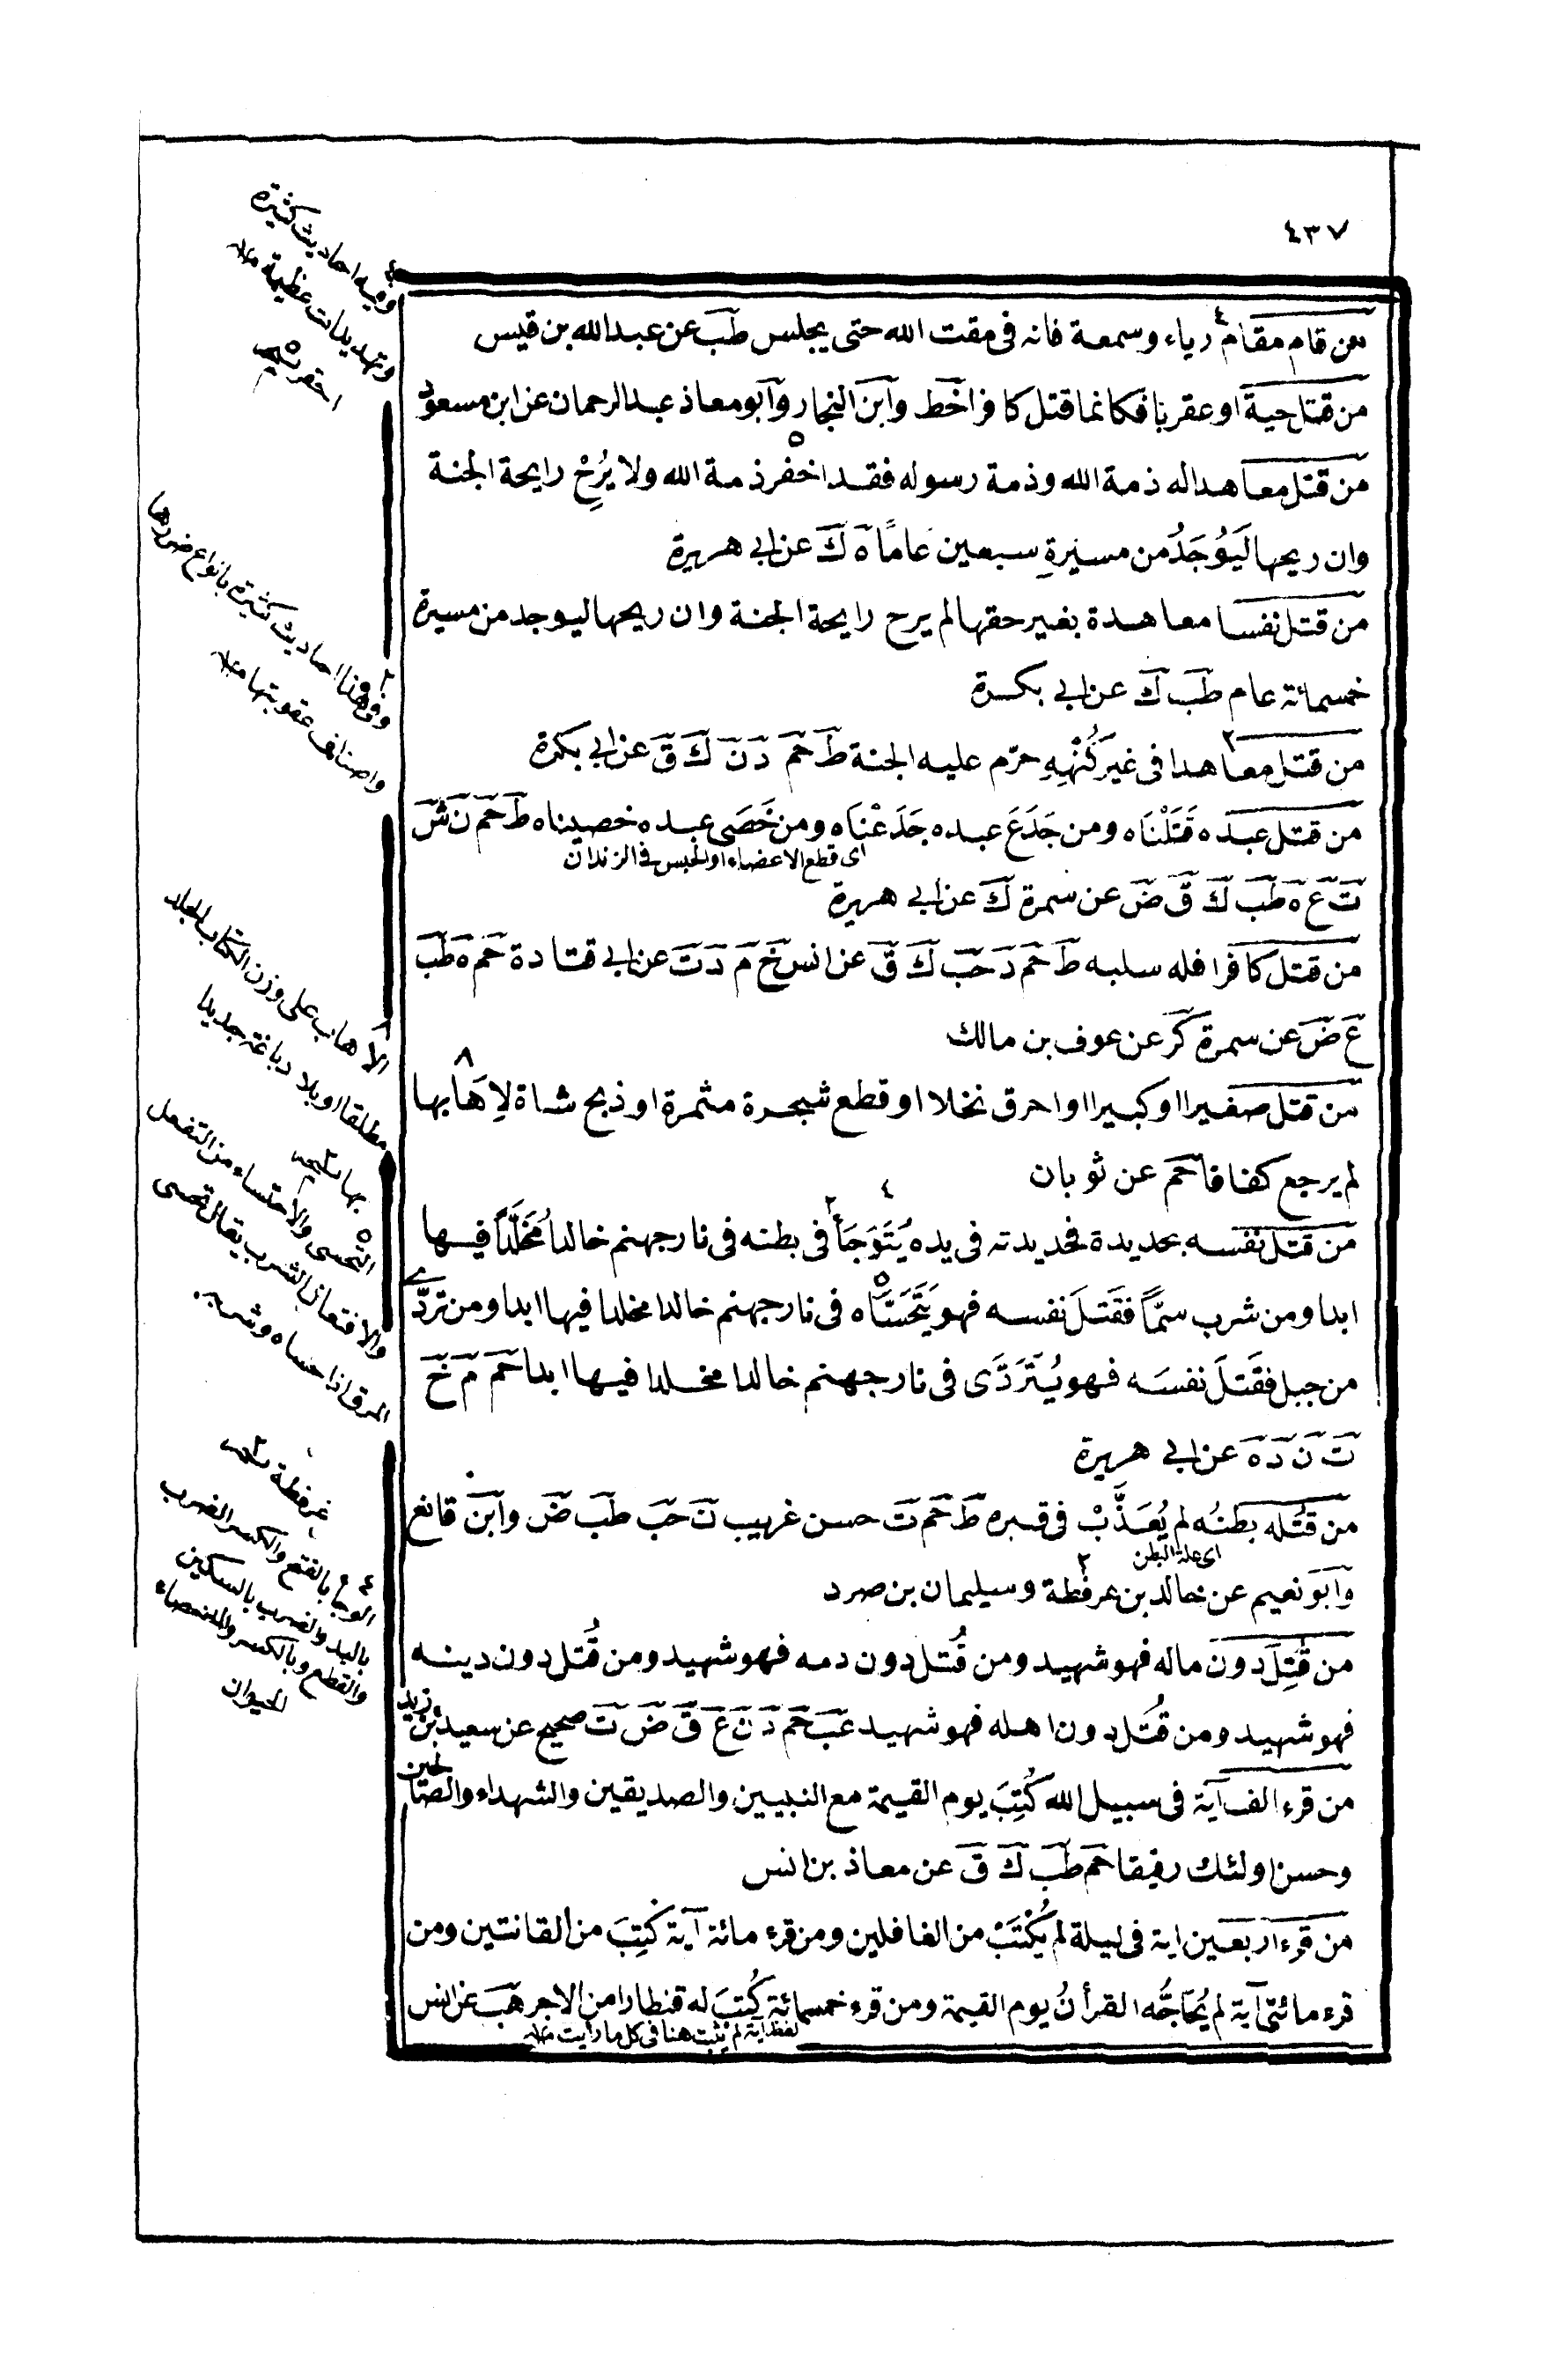 ٤٣٧
من قام مقام رياء وسمعة فانه فى مقت الله حتى يجلس طب عن عبدالله بن قيس
من قتل حية او عقربا فكانما قتل كافرا خط وابن النجار وابو معاذ عبدالرحمان عن ابن مسعود
من قتل معاهدا له ذمة الله وذمة رسوله فقد اخفر ذمة الله ولا يُرِحْ رايحة الجنة
وان ريحها لَيُوجَدُ من مسيَرةِ سبعين عامًا ه ك عن ابى هريرة
من قتل نفسا معاهدة بغير حقها لم يرح رايحة الجنة وان ريحها ليوجد من مسيرة
خسمائة عام طب ك عن ابى بكرة
من قتل معاهدا فى غير كُنْهِهِ حرّم عليه الجنة ط حم د ن ك ق عن ابى بكرة
من قتل عبده قَتَلْنَاه ومن جَدَعَ عبده جَدَعْنَاه ومن خَصَى عبده خصيناه ط حم ن ش
اى قطع الاعضاء او الحبس فى الزندان
ت ع ه طب ك ق ض عن سمرة ك عن ابى هريرة
من قتل كافرا فله سلبه ط حم د حب ك ق عن انس خ م د ت عن ابى قتادة حم ه طب
ع ض عن سمرة كر عن عوف بن مالك
من قتل صغيرا او كبيرا او احرق نخلا او قطع شجرة مثمرة او ذبح شاة لِاِهَابها
لم يرجع كفافا حم عن ثوبان
من قتل نفسه بحديدة فحديدته فى يده يُتَوَجَأُ فى بطنه فى نار جهنم خالدا مُخَلَّدًا فيها
ابدا ومن شرب سمّاً فقَتلَ نفسه فهو يَتَحَسَّاه فى نار جهنم خالدا مخلدا فيها ابدا ومن تردّى
من جبل فقَتَلَ نفسَه فهو يُتَرَدَّى فى نار جهنم خالدا مخلدا فيها ابدا حم م خ
ت ن د ه عن ابى هريرة
من قتله بطنُه لم يُعَذَّبْ فى قبره ط حم ت حسن غريب ن حب طب ض وابن قانع
اى علة البطن
وابو نعيم عن خالد بن عرفطة وسيليمان بن صرد
من قُتِلَ دون ماله فهو شهيد ومن قُتل دون دمه فهو شهيد ومن قُتل دون دينه
فهو شهيد ومن قُتل دون اهله فهو شهيد عب حم د ن ع ق ض ت صحيح عن سعيد بن زيد
من قرء الف آية فى سبيل الله كُتِبَ يوم القيمة مع النبيين والصديقين والشهداء والصالحين
وحسن اولئك رفيقا حم طب ك ق عن معاذ بن انس
من قرء اربعين اية فى ليلة لم يُكْتَبْ من الغافلين ومن قرء مائة آية كُتِبَ من القانتين ومن
قرء مائتى آية لم يُحَاجُّه القرأنُ يوم القيمة ومن قرء خمسمائة كُتبَ له قنطارا من الاجر هب عن انس
لفظ آية لم يثبت هنا فى كل ما رايت
وفيه احاديث كثيرة
وتهديدات عظيمة
وفى هذا احاديث كثيرة بانواع ضررها
واصناف عقوبتها
الاهاب على وزن الكتاب الجلد
مطلقا او بلا دباغة جديدا
التحسى والاحتساء من التفعل
والافتعال الشرب يقال تحسى
المرق اذا حساه وشربه
عرفطة
الوجأ بالفتح والكسر الضرب
باليد والضرب بالسكين
والقطع وبالكسر
الحيوان